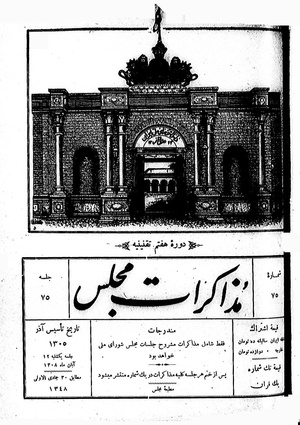 دورهٔ هفتم تقنینیه
مذاکرات مجلس
شمارهٔ
۷۵
جلسه
۷۵
قیمت اشتراک
داخله ایران سالیانه ده تومان
خارجه » دوازده تومان
قیمت تک شماره
یک قران
مندرجات
فقط شامل مذاکرات مشروح جلسات مجلس شورای ملی
خواهد بود
پس از ختم هر جلسه کلیه مذاکرات در یک شماره منتشر میشود
مطبعه مجلس
تاریخ تأسیس آذر
۱۳۰۵
جلسه یکشنبه ۱۲
آبان ماه ۱۳۰۸
مطابق ۳۰ جمادی الاولی
۱۳۴۸